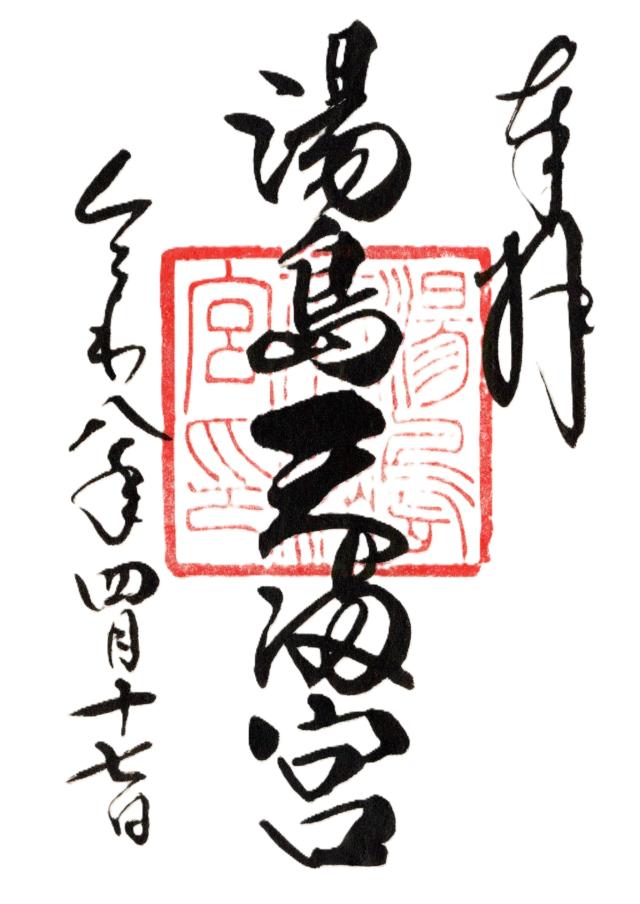 奉拝
湯島天満宮
令和八年四月十七日
湯島天満宮印